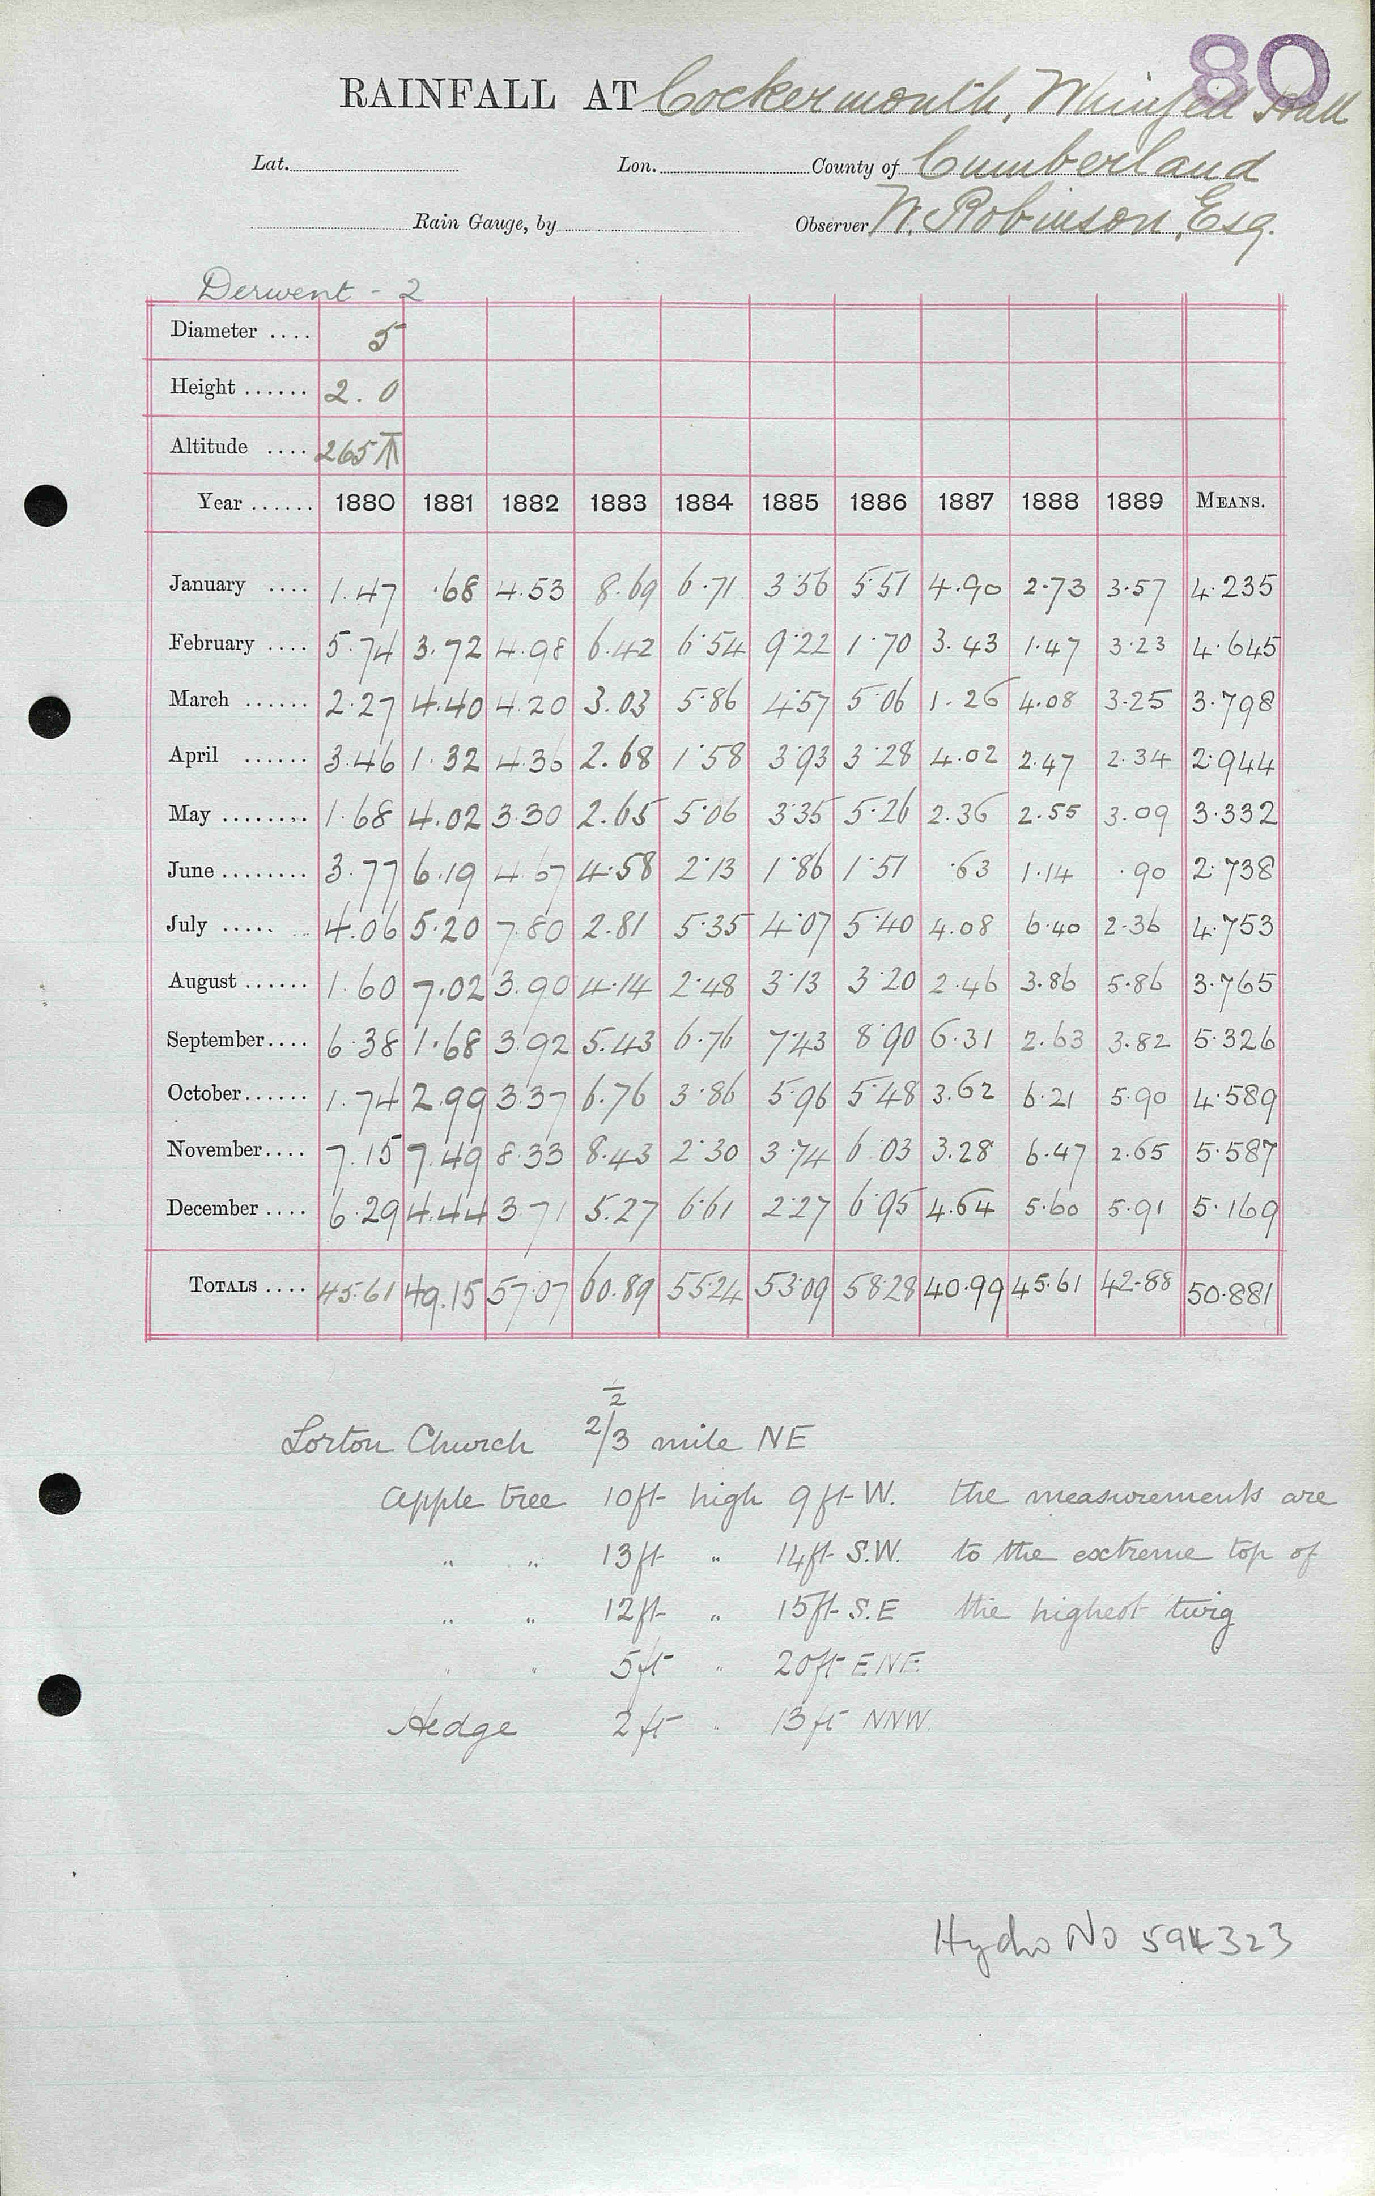 80
RAINFALL AT Cockermouth, Whinfell Hall
Lat. Lon. County of Cumberland
Rain Gauge, by Observer W. Robinson, Esq.
Derwent - 2
Diameter .... 5
Height ...... 2. 0
Altitude .... 265
Year ...... 1880 1881 1882 1883 1884 1885 1886 1887 1888 1889 MEANS.
January .... 1.47 .68 4.53 8.69 6.71 3.56 5.51 4.90 2.73 3.57 4.235
February .... 5.74 3.72 4.98 6.42 6.54 9.22 1.70 3.43 1.47 3.23 4.645
March ...... 2.27 4.40 4.20 3.03 5.86 4.57 5.06 1.26 4.08 3.25 3.798
April ...... 3.46 1.32 4.36 2.68 1.58 3.93 3.28 4.02 2.47 2.34 2.944
May ........ 1.68 4.02 3.30 2.65 5.06 3.35 5.26 2.36 2.55 3.09 3.332
June ........ 3.77 6.19 4.67 4.58 2.13 1.86 1.51 .63 1.14 .90 2.738
July ..... 4.06 5.20 7.80 2.81 5.35 4.07 5.40 4.08 6.40 2.36 4.753
August ...... 1.60 7.02 3.90 4.14 2.48 3.13 3.20 2.46 3.86 5.86 3.765
September.... 6.38 1.68 3.92 5.43 6.76 7.43 8.90 6.31 2.63 3.82 5.326
October...... 1.74 2.99 3.37 6.76 3.86 5.96 5.48 3.62 6.21 5.90 4.589
November.... 7.15 7.49 8.33 8.43 2.30 3.74 6.03 3.28 6.47 2.65 5.587
December .... 6.29 4.44 3.71 5.27 6.61 2.27 6.95 4.64 5.60 5.91 5.169
TOTALS .... 45.61 49.15 57.07 60.89 55.24 53.09 58.28 40.99 45.61 42.88 50.881
2
Lorton Church 2/3 mile NE
Apple tree 10ft high 9ft W. the measurements are
" " 13ft " 14ft S.W. to the extreme top of
" " 12ft " 15ft S.E the highest twig
" " 5ft " 20ft ENE.
Hedge 2ft " 13ft NNW.
Hydro No 594323